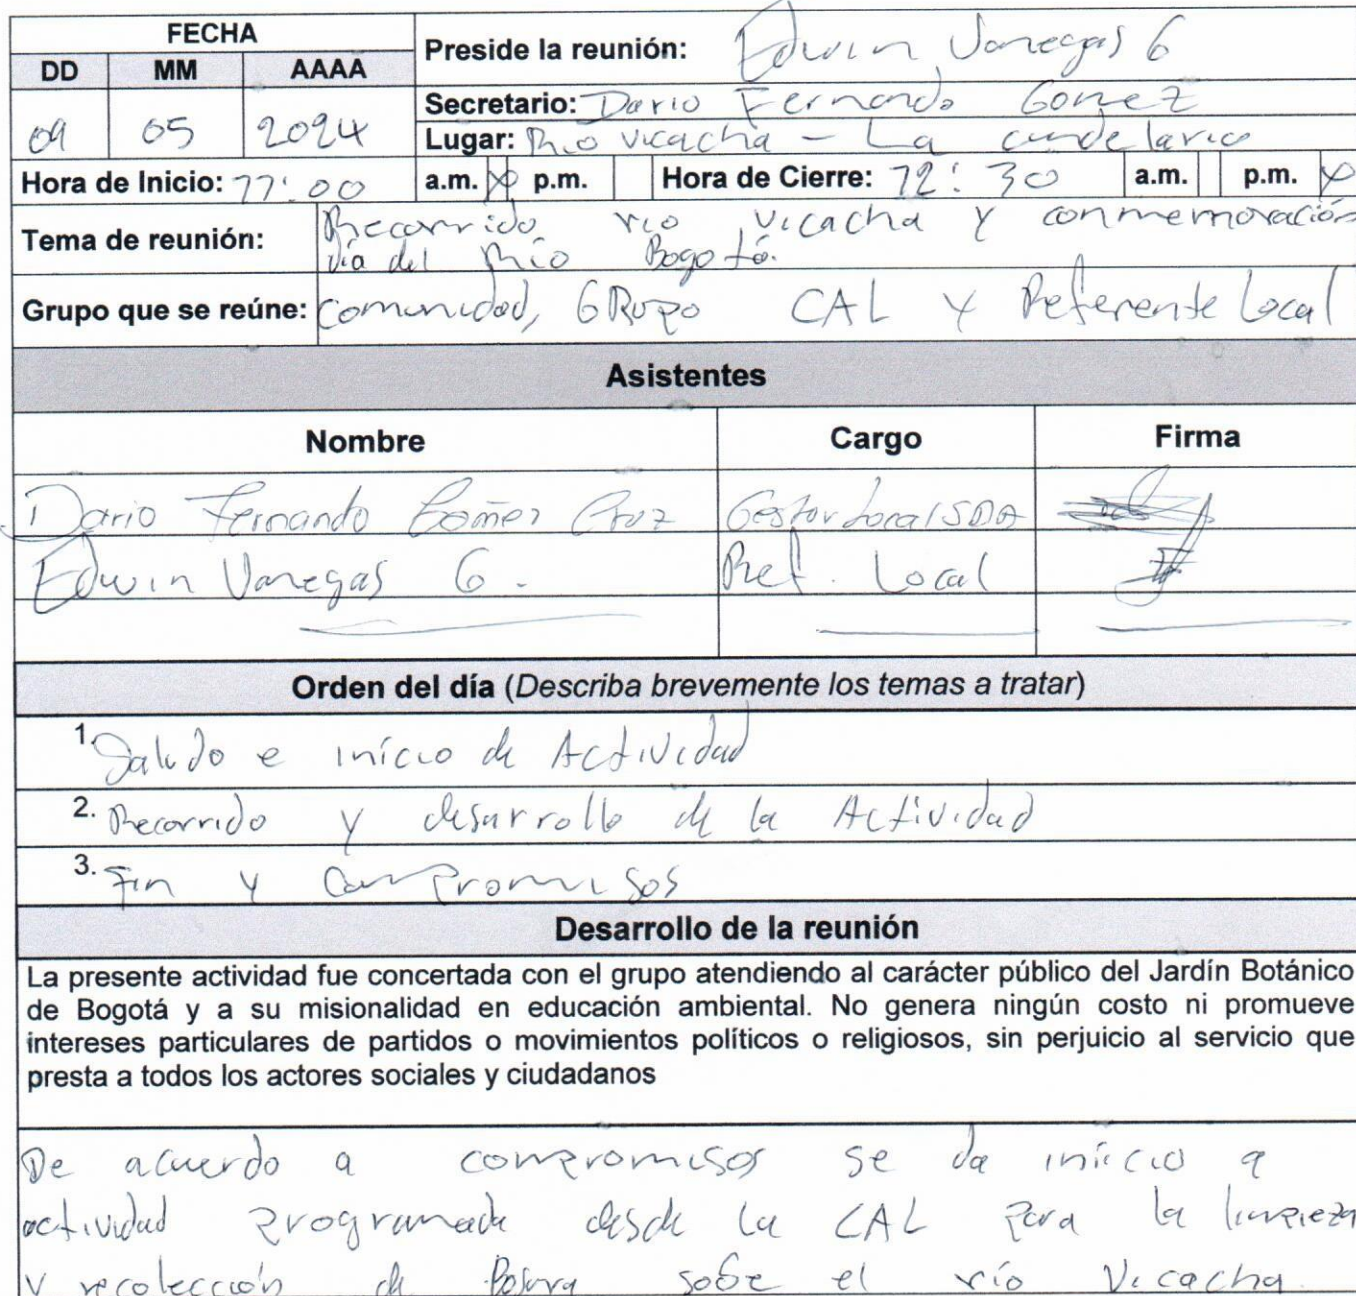 FECHA
DD MM AAAA
09 05 2024
Preside la reunión: Edwin Vanegas G
Secretario: Dario Fernando Gomez
Lugar: Río vicacha - La candelaria
Hora de Inicio: 11:00 a.m. X p.m. Hora de Cierre: 12:30 a.m. p.m. X
Tema de reunión: Recorrido río vicacha y conmemoración
día del Río Bogotá.
Grupo que se reúne: Comunidad, GRupo CAL y Referente Local
Asistentes
Nombre Cargo Firma
Dario Fernando Gómez Cruz Gestor Local SDA
Edwin Vanegas G. Ref. Local
Orden del día (Describa brevemente los temas a tratar)
1. Saludo e inicio de Actividad
2. Recorrido y desarrollo de la Actividad
3. Fin y Compromisos
Desarrollo de la reunión
La presente actividad fue concertada con el grupo atendiendo al carácter público del Jardín Botánico
de Bogotá y a su misionalidad en educación ambiental. No genera ningún costo ni promueve
intereses particulares de partidos o movimientos políticos o religiosos, sin perjuicio al servicio que
presta a todos los actores sociales y ciudadanos
De acuerdo a compromisos se da inicio a
actividad programada desde la CAL para la limpieza
y recolección de Basura sobre el río Vicacha.